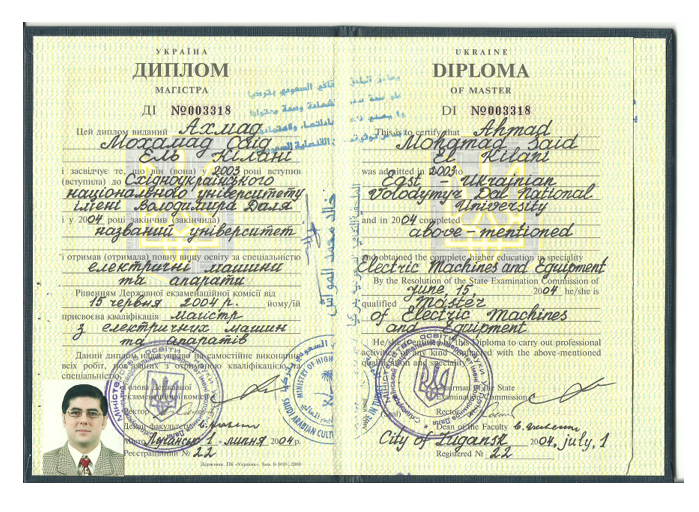 УКРАЇНА
ДИПЛОМ
МАГІСТРА
ДІ №003318
Цей диплом виданий Ахмад
Мохамад Саід
Ель Кілані
і засвідчує те, що він (вона) у 2003 році вступив
(вступила) до Східноукраїнського
національного університету
імені Володимира Даля
і у 2004 році закінчив (закінчила)
названий університет
і отримав (отримала) повну вищу освіту за спеціальністю
електричні машини
та апарати
Рішенням Державної екзаменаційної комісії від
15 червня 2004 р. йому/їй
присвоєна кваліфікація магістр
з електричних машин
та апаратів
Даний диплом надає право на самостійне виконання
всіх робіт, пов'язаних з отриманою кваліфікацією
спеціальністю.
Голова Державної
екзаменаційної комісії
Ректор
Декан факультету
Місто Луганськ 1 - липня 2004р.
Реєстраційний № 22
UKRAINE
DIPLOMA
OF MASTER
DI №003318
This is to certify that Ahmad
Mohamad Said
El Kilani
was admitted in 2003 to
East - Ukrainian
Volodymyr Dal National
University
and in 2004 completed
above-mentioned
and obtained the complete higher education in speciality
Electric Machines and Equipment
By the Resolution of the State Examination Commission of
June, 15, 2004 he/she is
qualified Master
of Electric Machines
and Equipment
of this Diploma to carry out professional
with the above-mentioned
Chairman of the State
Examination Commission
(Seal) Rector
Dean of the Faculty
City of Lugansk 2004, july, 1
Registered № 22
MINISTRY OF HIGH
SAUDI ARABIAN CULTU